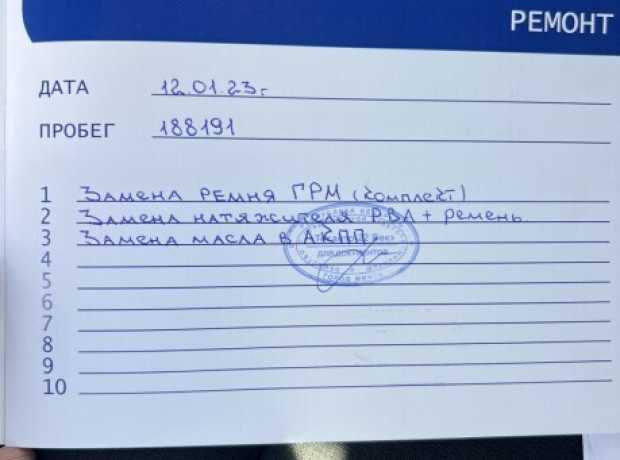 РЕМОНТ
ДАТА 12.01.23г.
ПРОБЕГ 188191
1 Замена ремня ГРМ (комплект)
2 Замена натяжителя РВЛ + ремень
3 Замена масла в АКПП.
для документов
4
5
6
7
8
9
10